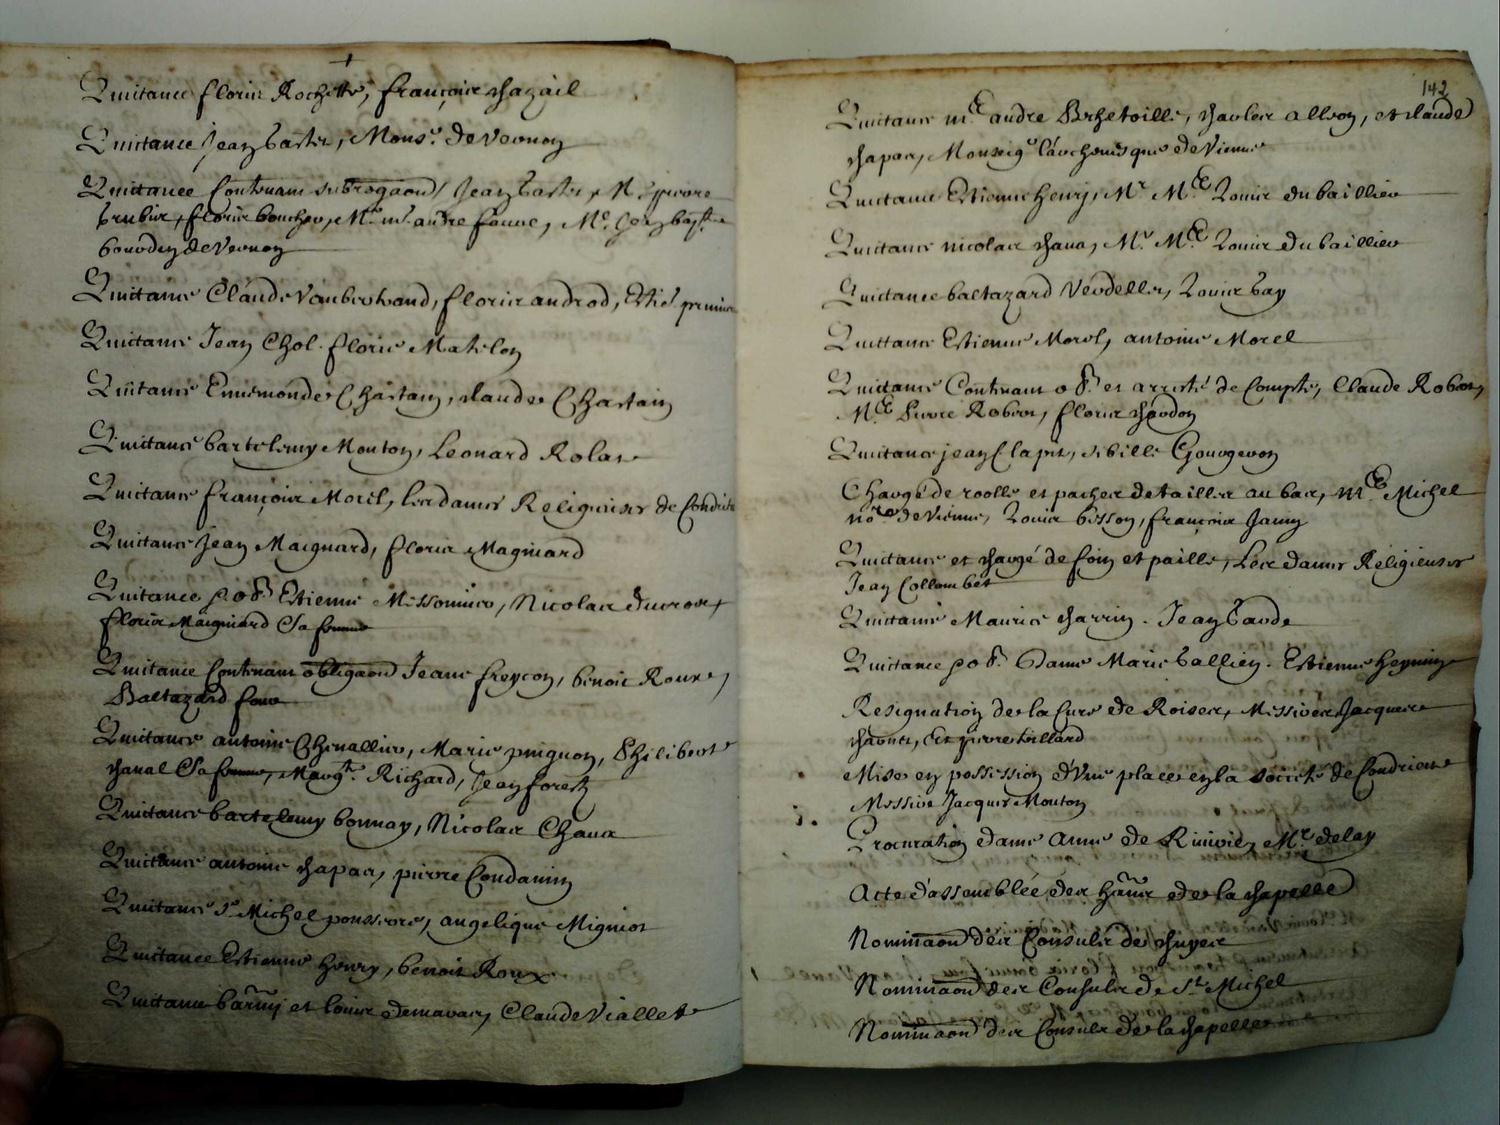 Quittance florie Rochette, françois chazail
Quittance Jean baste, Mons.r de Vernon
Quittance Contenant subrogaon, Jean baste, pierre
florie bouchou, M.e andre faure, M.e Jean bap.te
bourdin de Vernon
Quittance Claude Vanbertrand, florie androd, Etie.
Quittance Jean Chol. florie Matelon
Quittance Ennemonde Chastain, claude Chastain
Quittance bartelemy Mouton, Leonard Rolas
Quittance françois Moril, les dames Religieuses de Condrieu
Quittance Jean Maignard, florie Magniard
Quittance p obl Estienne Messonnier, Nicolas ducroux
florie Maigniard Sa femme
Quittance Contenant obligaon Jeane freycon, benoit Roux,
Baltazard faure
Quittance antoine Chevallier, Marie pingnon, Philibert
chanal Sa femme, Marg.te Richard, Jean forest
Quittance bartelemy bonnay, Nicolas Chaux
Quittance antoine chapas, pierre Condamin
Quittance S.r Michel poussere, angelique Migniot
Quittance Estienne henry, benoit Roux
Quittance et louis demavas, Claude Viallet
142
Quittance m.e andre Brhetoille, charles alleon, et claude
chapas, Monseig.r l'archevesque de Vienne
Quittance Estienne henry, M.r M.e Louis dubaillieu
Quittance nicolas chaux, M.r M.e Louis dubaillieu
Quittance baltazard Verdellet, Louis bay
Quittance Estienne Morel, antoine Morel
Quittance Contenant obl et arresté de Compte, Claude Robert,
M.e pierre Robert, florie chardon
Quittance jean Clapet, sibille Gourgeron
Chargé de roolle et pacher de tailler au bas, m.e Michel
no.re de Vienne, Louis bisson, françois Jamy
Quittance et chargé de foin et paille, Les dames Religieuses
Jean Collombet
Quittance Maurice charvin. Jean barde
Quittance p obl Dame Marie ballien. Estienne
Resignation de la Cure de Roisey, Messires Jacques
et pierre tillard
Mise en possession d'Une place en la societé de Condrieu
Messire Jacques Mouton
Procuration dame anne de M.r delay
Acte d'assemblée des ha.ns de la chapelle
Nominaon des Consuls de chuyer
Nominaon des Consuls de S.t Michel
Nominaon des Consuls de la chapelle